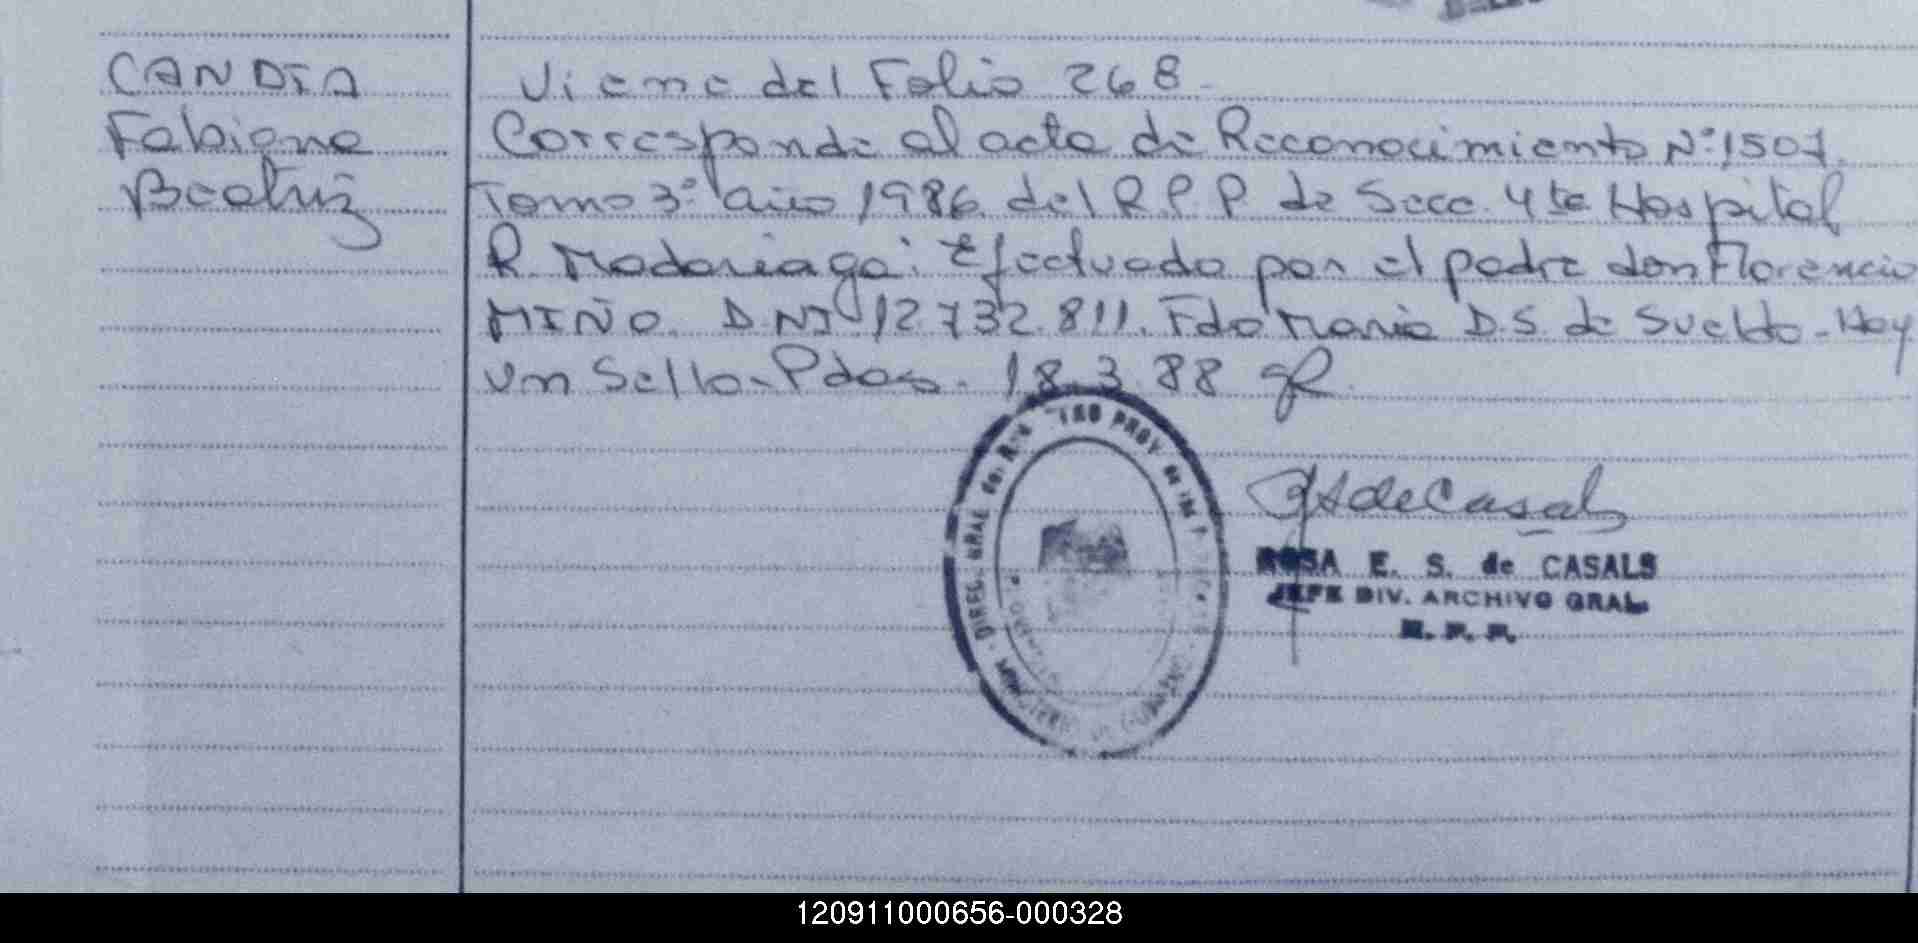 CANDIA
Fabiana
Beatriz
Viene del Folio 268.-
Corresponde al acta de Reconocimiento Nº:1507.
Tomo 3º Año 1986 del R.P.P de Secc. 4ta Hospital
R. Madariaga: Efectuado por el padre don Florencio
MIÑO. D.NI 12.732.811. Fdo Maria D.S. de Sueldo-Hay
un Sello-Pdas. 18.3.88
DIREC. GRAL del PROV de
MINISTERIO DE GOBIERNO
RSdeCasals
ROSA E. S. de CASALS
JEFE DIV. ARCHIVO GRAL.
R. P. P.
120911000656-000328